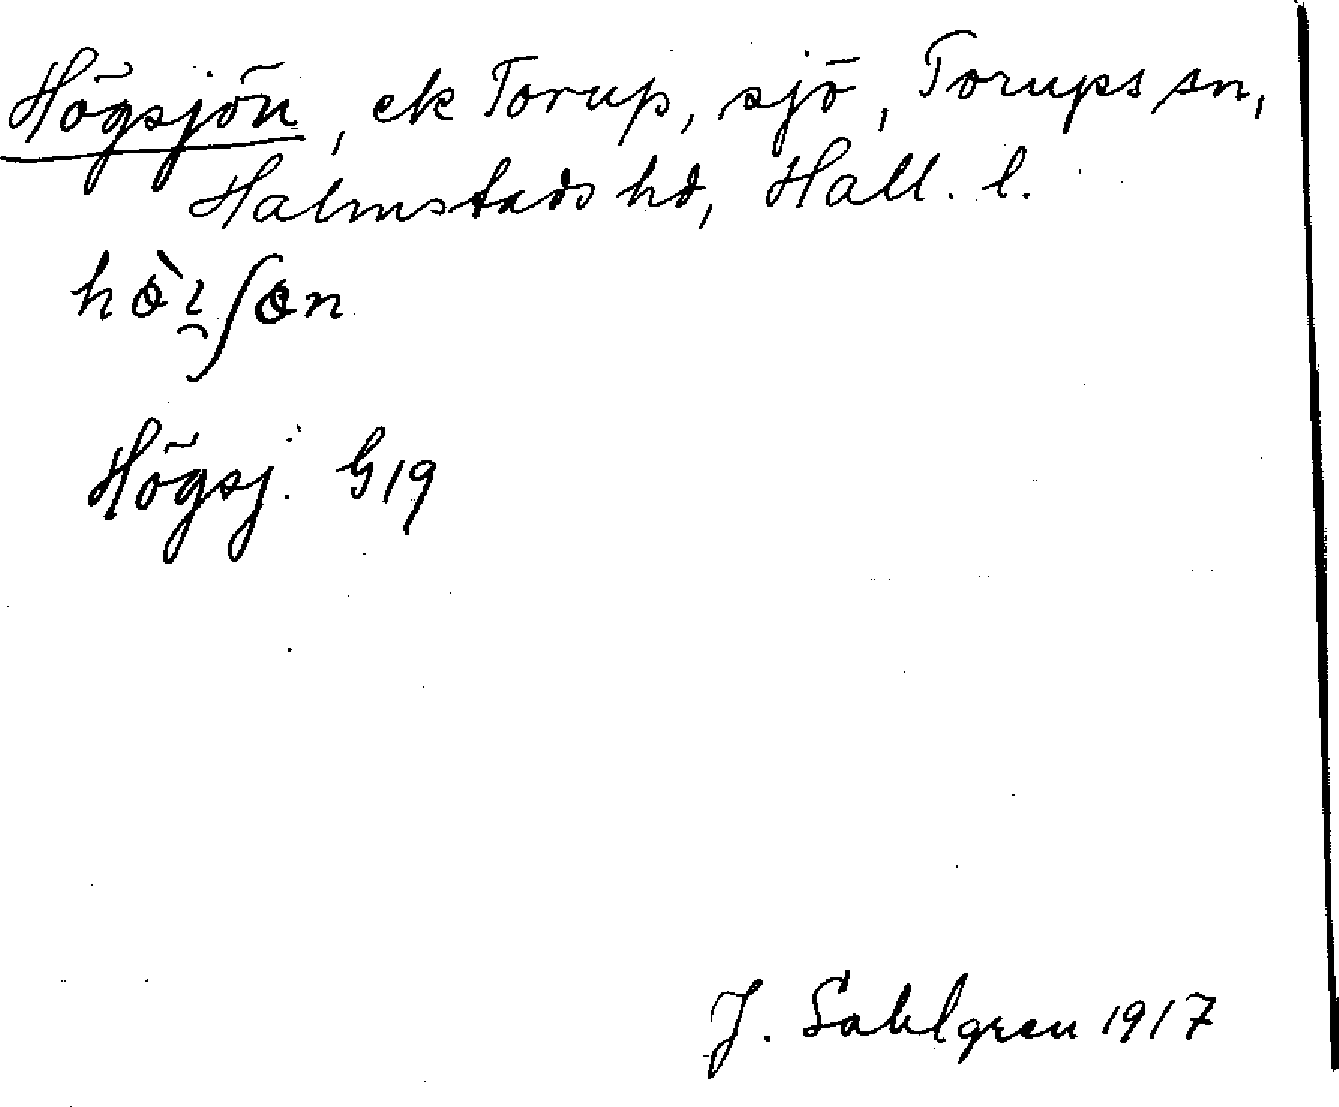 Högsjön, ek Torup, sjö, Torups sn,
Halmstads hd, Hall. l.
hɵ̀ɩ̯ʃɵn
Högsj. G19
J. Sahlgren 1917